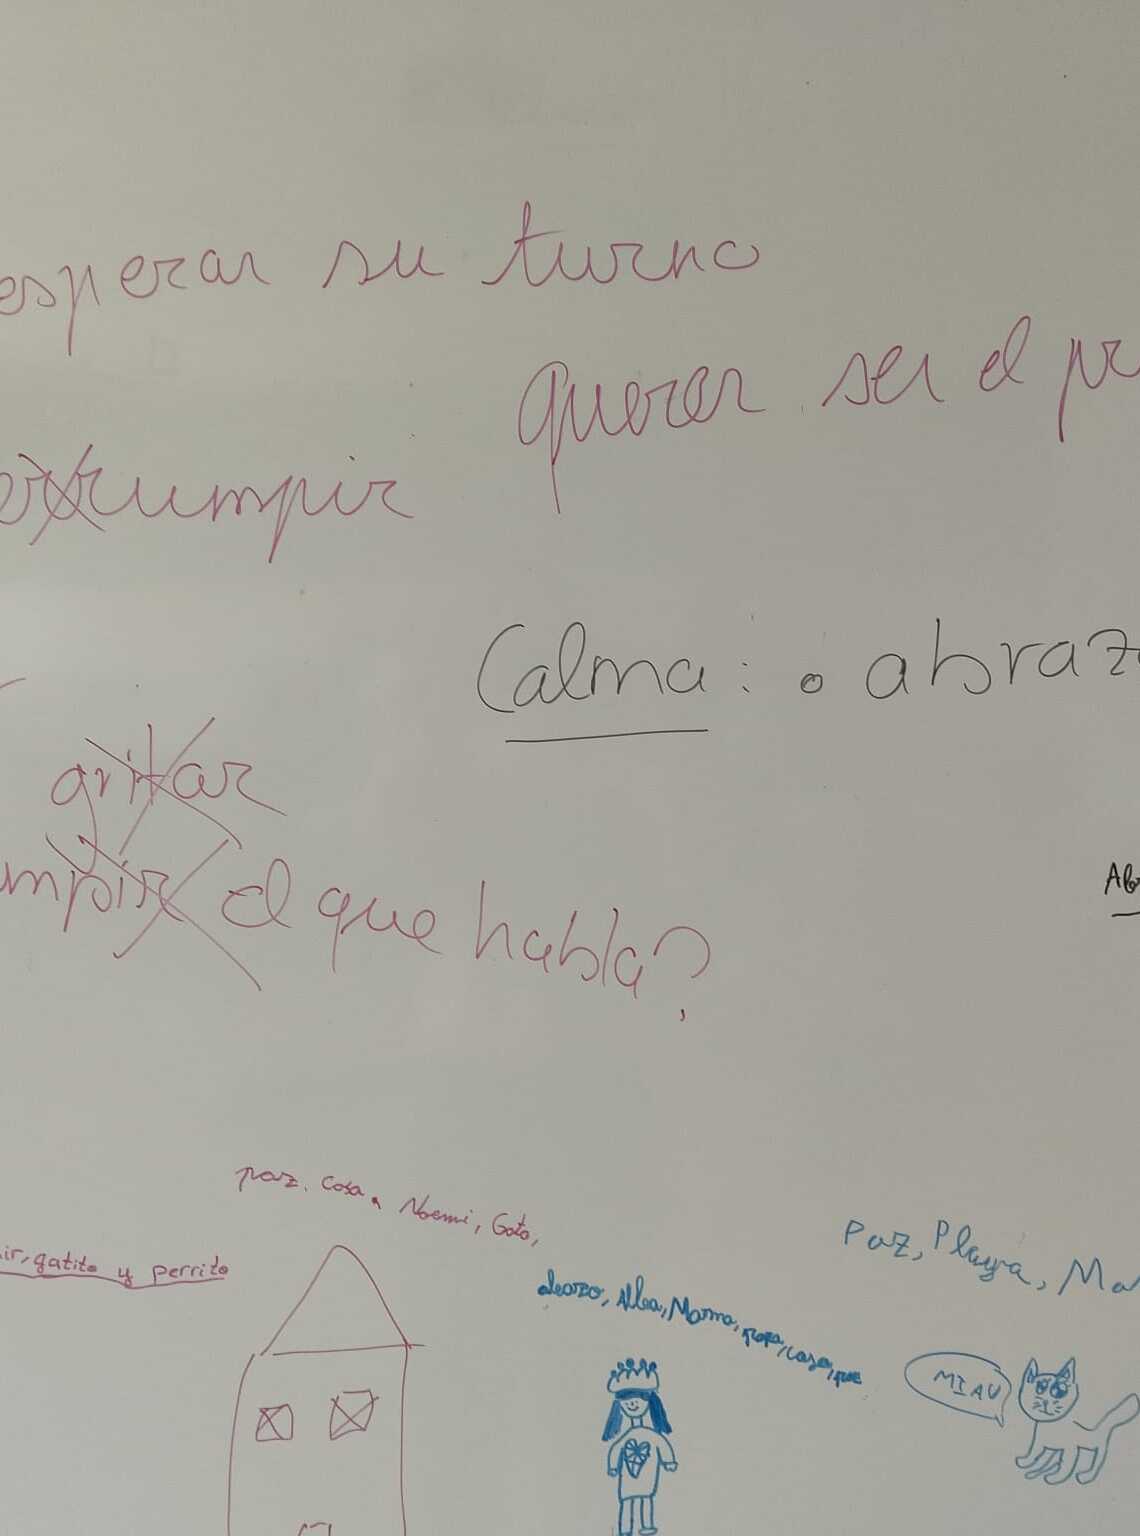 esperar su turno
querer ser el pr
errumpir
Calma: o abraz
gritar
mpir el que habla?
Abr
paz. Cosa, Noemi, Gato,
ir, gatito y perrito
Paz, Playa, Ma
Alba, Mama, papa, casa, paz
MIAU